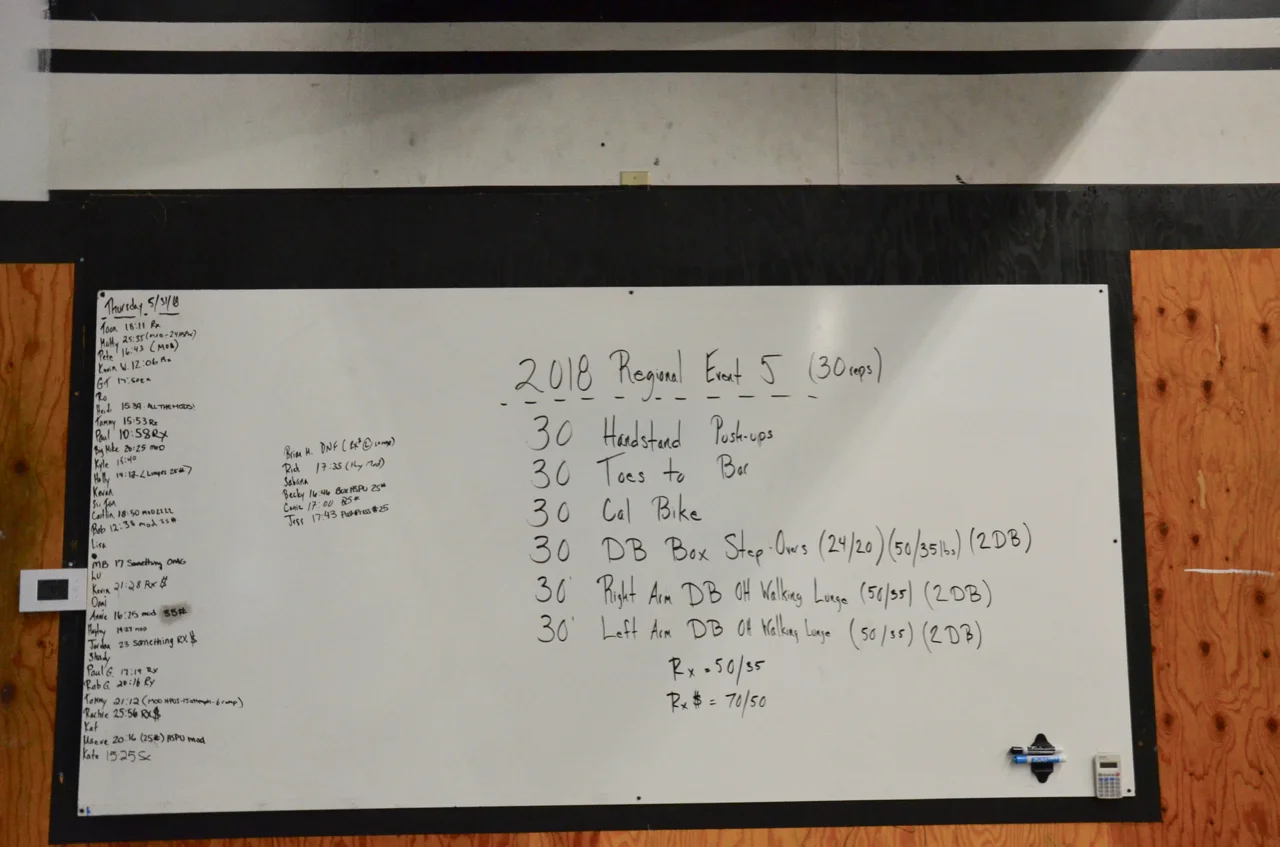 Thursday 5/31/18
18:11 Rx
25:35
Pete 16:43 (MOD)
Kevin W. 12:06 Rx
GT
Ro
15:39 ALL THE MODS!
Tammy 15:53 Rx
Paul 10:58 Rx
Big Mike 20:25 mod
Kyle 15:40
Holly (Lunges 25#)
Keven
Caitlin 18:50
Rob 12:38 mod 35#
Lisa
MB 17 Something OMG
LU
Kevin 21:28 Rx $
Omi
Annie 16:25 mod 35#
Hayley mod
Jordan 23 Something RX $
Shady
Paul G. 17:19 Rx
Rob G. 20:16 Rx
Tommy 21:12
Rachie 25:56 RX $
Kat
20:16 (25#) HSPU mod
Kate 15:25 Sc
Brian H. DNF
Rich 17:35
Sabana
Becky 16:46 Box HSPU 25#
17:00
Jess 17:43 Push Press #25
2018 Regional Event 5 (30 reps)
30 Handstand Push-ups
30 Toes to Bar
30 Cal Bike
30 DB Box Step-Overs (24/20) (50/35lbs) (2DB)
30 Right Arm DB OH Walking Lunge (50/35) (2DB)
30 Left Arm DB OH Walking Lunge (50/35) (2DB)
Rx = 50/35
Rx $ = 70/50